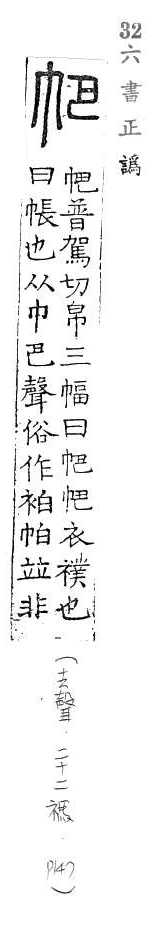 32 六書正譌
帊
帊普駕切帛三幅曰帊帊衣襆也一
曰帳也从巾巴聲俗作袙帕竝非
(去聲.二十二禡.P147)